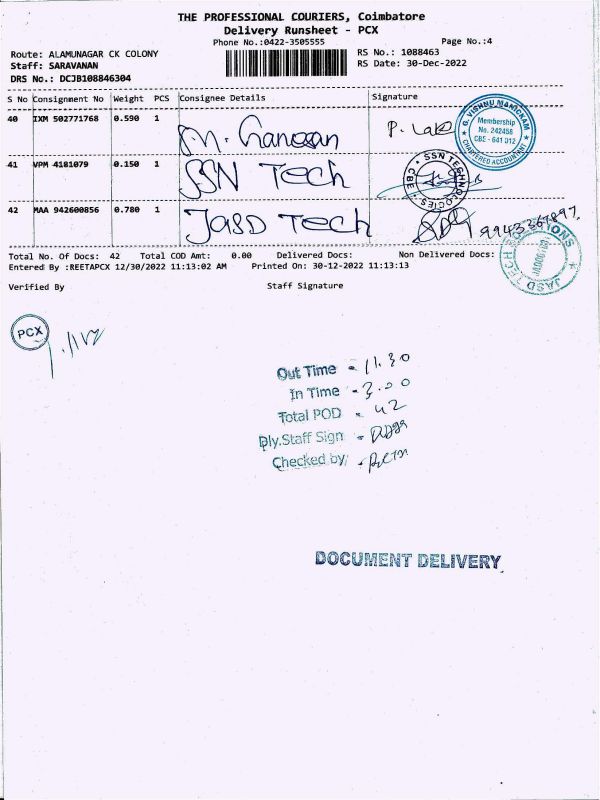 THE PROFESSIONAL COURIERS, Coimbatore
Delivery Runsheet - PCX
Phone No.:0422-3505555 Page No.:4
Route: ALAMUNAGAR CK COLONY RS No.: 1088463
Staff: SARAVANAN RS Date: 30-Dec-2022
DRS No.: DCJB108846304
S No Consignment No Weight PCS Consignee Details Signature
40 IXM 502771768 0.590 1
G. VISHNU MANICKAM
Membership
No. 242456
CBE - 641 012
CHARTERED ACCOUNTANT
41 VPM 4181079 0.150 1 SSN Tech
SSN TECHNOLOGIES
CBE
42 MAA 942600856 0.780 1 JASD Tech
JASD TECH SOLUTIONS
Total No. Of Docs: 42 Total COD Amt: 0.00 Delivered Docs: Non Delivered Docs:
Entered By :REETAPCX 12/30/2022 11:13:02 AM Printed On: 30-12-2022 11:13:13
Verified By Staff Signature
PCX
Out Time - 11.30
In Time - 3.00
Total POD - 42
Dly.Staff Sign -
Checked by -
DOCUMENT DELIVERY